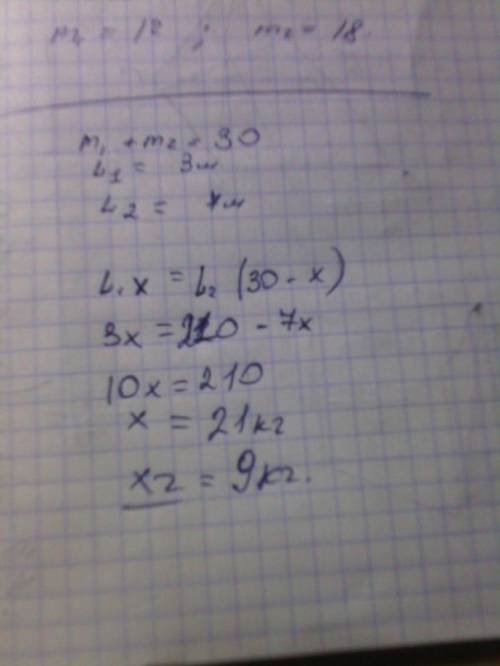 m₁ = 12 ; m₂ = 18.
m₁ + m₂ = 30
L₁ = 3м
L₂ = 7м
L₁x = L₂ (30 - x)
3x = 210 - 7x
10x = 210
x = 21кг
x₂ = 9кг.